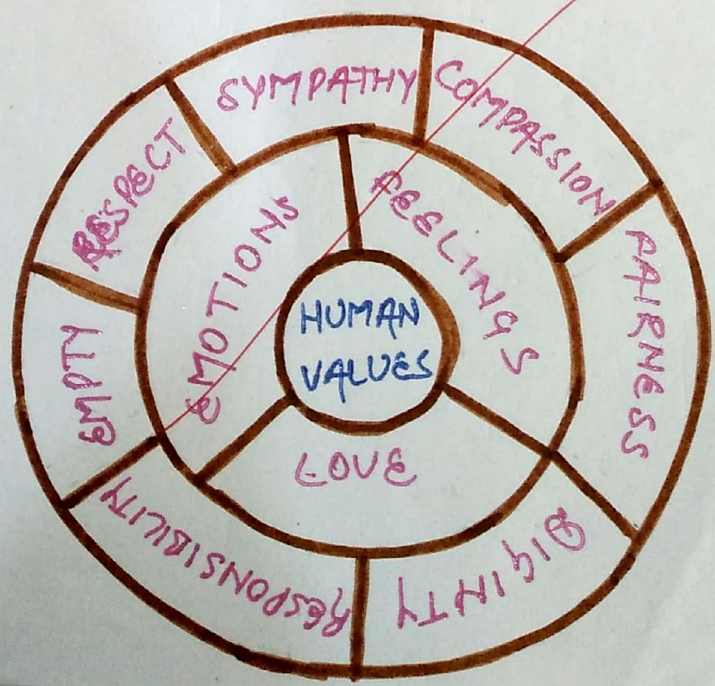 HUMAN
VALUES
EMOTIONS
FEELINGS
LOVE
SYMPATHY
COMPASSION
FAIRNESS
DIGINTY
RESPONSIBILITY
EMPTY
RESPECT